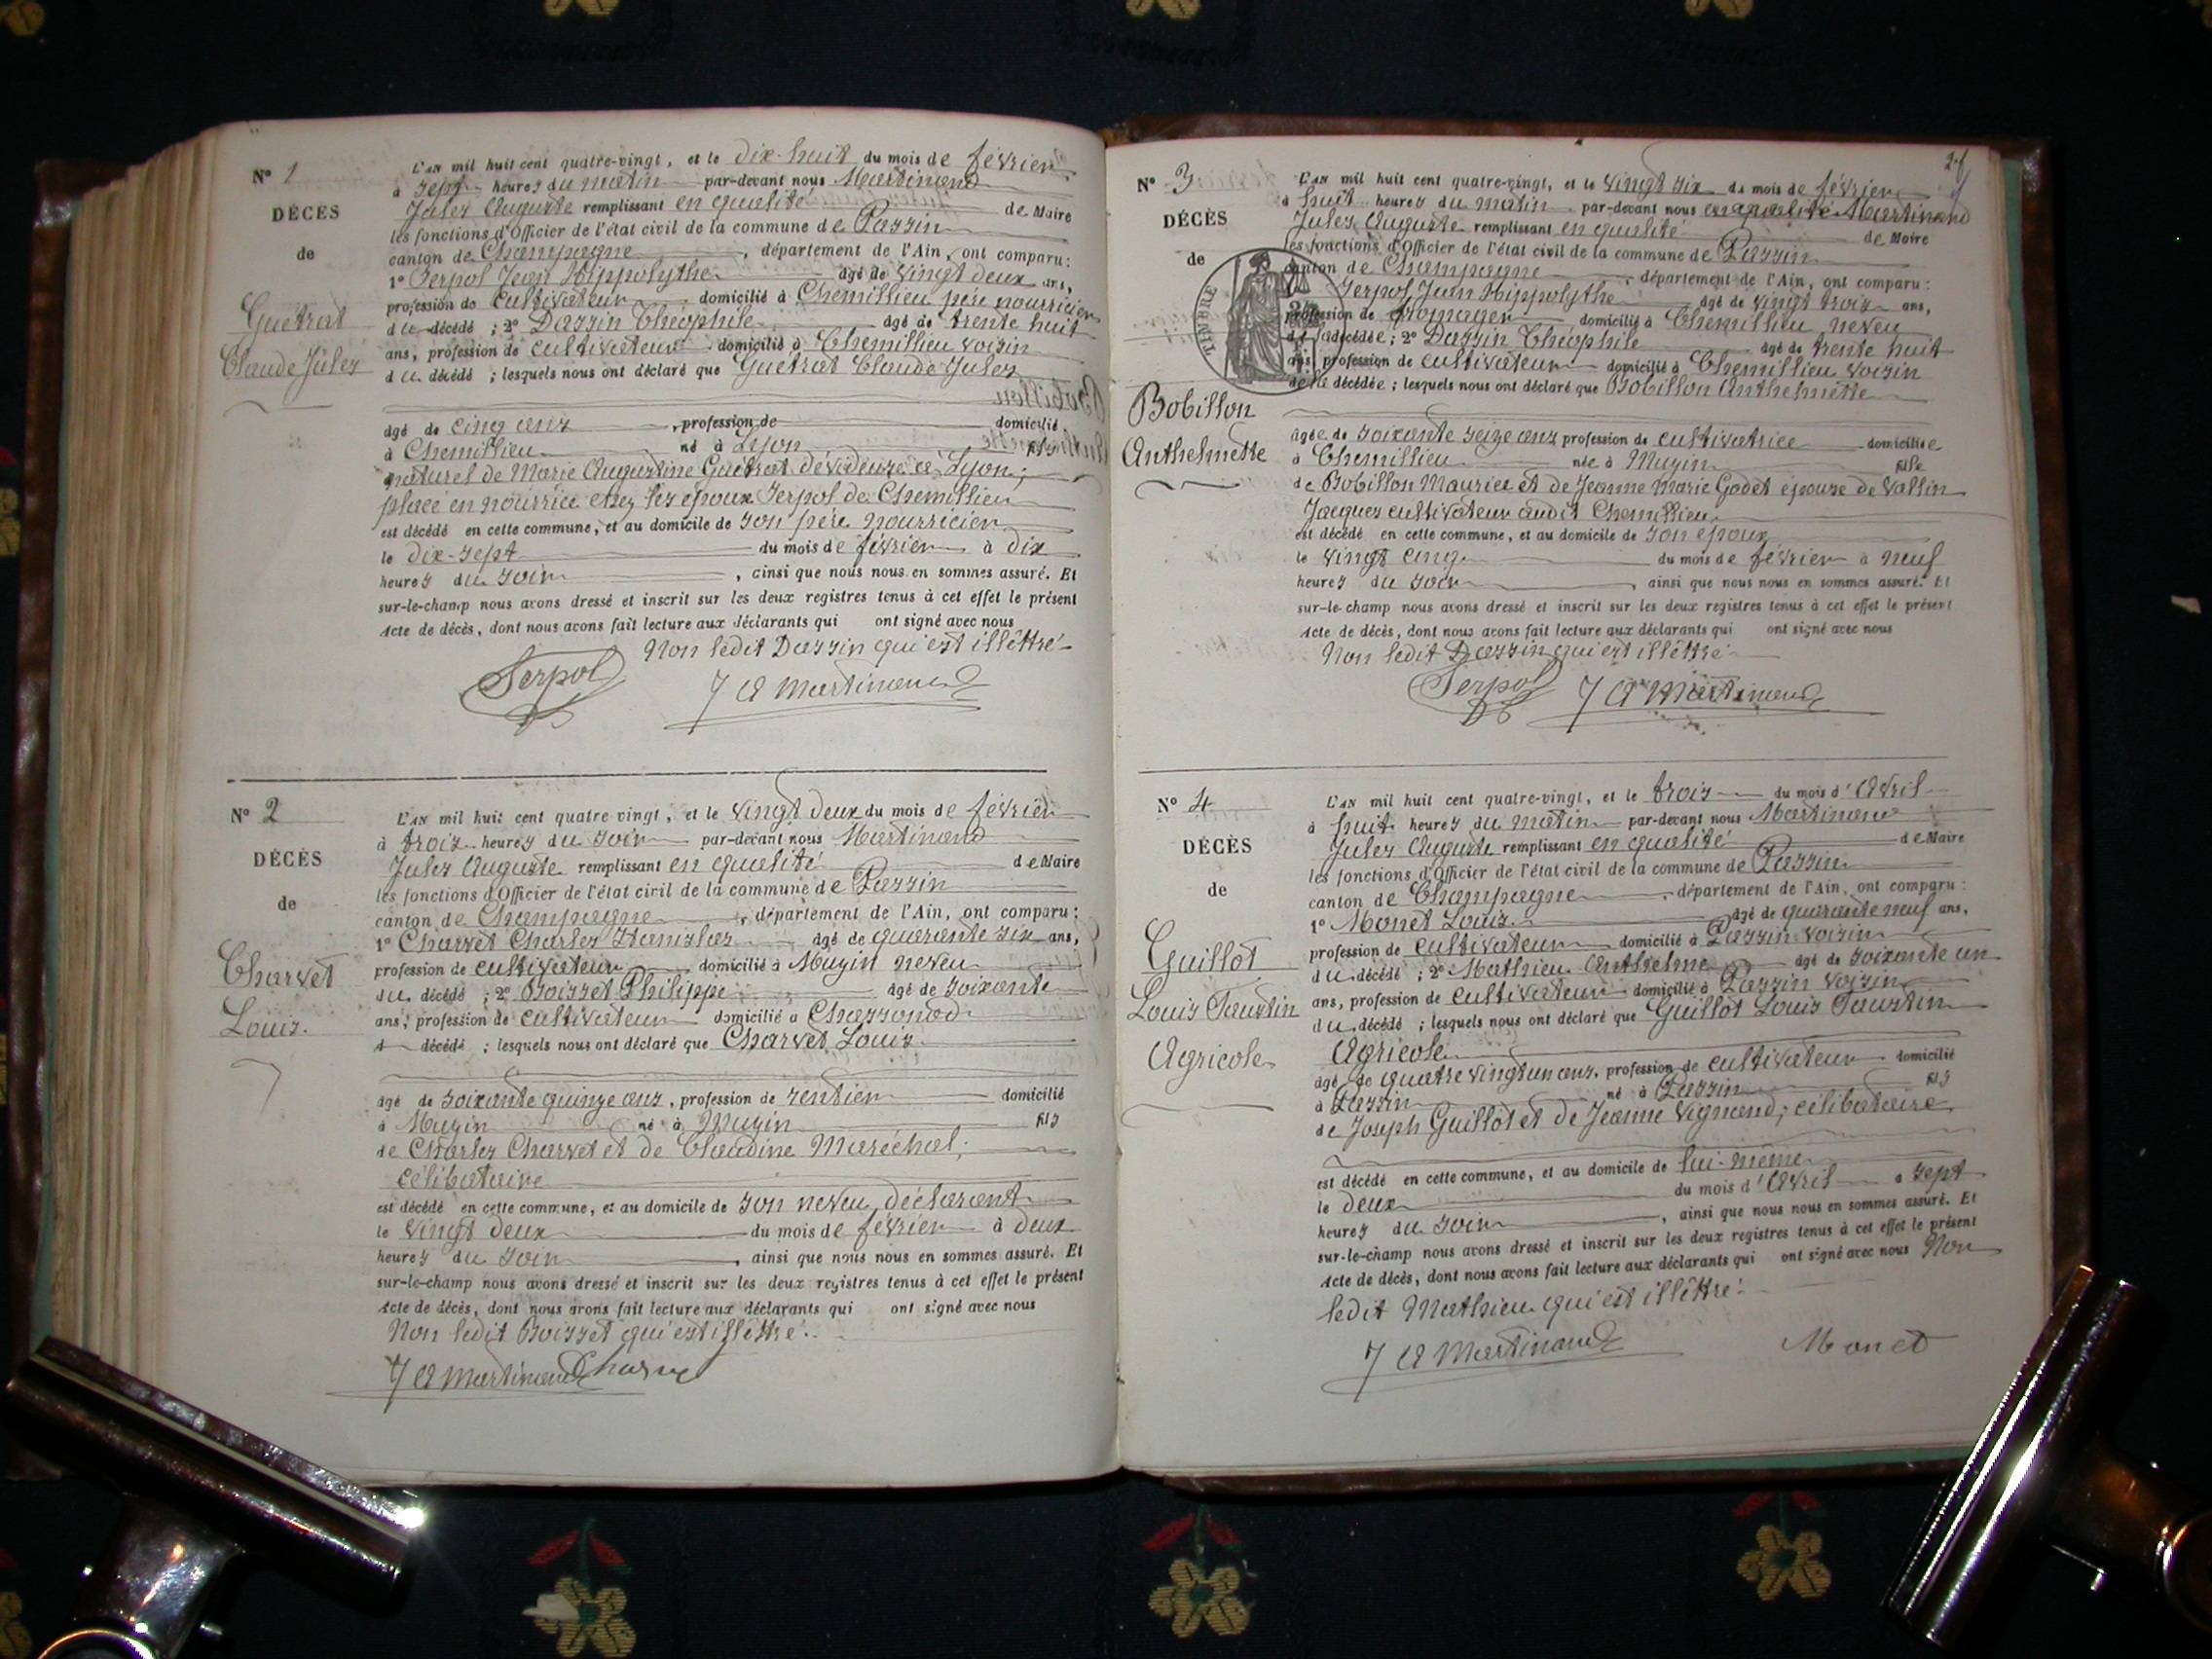 N° 1
DÉCÈS
de
Guétrat
Claude Jules
L'AN mil huit cent quatre-vingt, et le dix-huit du mois de février
à sept heures du matin par-devant nous Martinand
Jules Auguste remplissant en qualité de Maire
les fonctions d'Officier de l'état civil de la commune de Passin
canton de Champagne, département de l'Ain, ont comparu:
1° Serpol Jean Hippolythe âgé de vingt deux ans,
profession de cultivateur domicilié à Chemillieu père nourricier
du décédé ; 2° Dassin Théophile âgé de trente huit
ans, profession de cultivateur domicilié à Chemillieu voisin
du décédé ; lesquels nous ont déclaré que Guétrat Claude Jules
âgé de cinq ans, profession de domicilié
à Chemillieu né à Lyon, fils
naturel de Marie Augustine Guétrat dévideuse à Lyon;
placé en nourrice chez les époux Serpol de Chemillieu
est décédé en cette commune, et au domicile de son père nourricier
le dix-sept du mois de février à dix
heures du soir, ainsi que nous nous en sommes assuré. Et
sur-le-champ nous avons dressé et inscrit sur les deux registres tenus à cet effet le présent
Acte de décès, dont nous avons fait lecture aux déclarants qui ont signé avec nous
Non ledit Dassin qui est illettré
Serpol J A Martinand
N° 2
DÉCÈS
de
Charvet
Louis.
L'AN mil huit cent quatre vingt, et le vingt deux du mois de février
à trois heures du soir par-devant nous Martinand
Jules Auguste remplissant en qualité de Maire
les fonctions d'Officier de l'état civil de la commune de Passin
canton de Champagne, département de l'Ain, ont comparu:
1° Charvet Charles Stanislas âgé de quarante six ans,
profession de cultivateur domicilié à Muzin neveu
du décédé ; 2° Boisset Philippe âgé de soixante
ans, profession de cultivateur domicilié à Chassonod
d décédé ; lesquels nous ont déclaré que Charvet Louis
âgé de soixante quinze ans, profession de rentier domicilié
à Muzin né à Muzin fils
de Charles Charvet et de Claudine Maréchal;
célibataire
est décédé en cette commune, et au domicile de son neveu déclarant
le vingt deux du mois de février à deux
heures du soir, ainsi que nous nous en sommes assuré. Et
sur-le-champ nous avons dressé et inscrit sur les deux registres tenus à cet effet le présent
Acte de décès, dont nous avons fait lecture aux déclarants qui ont signé avec nous
Non ledit Boisset qui est illettré.
J A Martinand Charvet
N° 3
DÉCÈS
de
TIMBRE
Bobillon
Anthelmette
L'AN mil huit cent quatre-vingt, et le vingt six du mois de février
à huit heures du matin par-devant nous en qualité Martinand
Jules Auguste remplissant en qualité de Maire
les fonctions d'Officier de l'état civil de la commune de Passin
canton de Champagne, département de l'Ain, ont comparu:
Serpol Jean Hippolythe âgé de vingt trois ans,
profession de fromager domicilié à Chemillieu neveu
de la décédée; 2° Dassin Théophile âgé de trente huit
ans, profession de cultivateur domicilié à Chemillieu voisin
de la décédée; lesquels nous ont déclaré que Bobillon Anthelmette
âgée de soixante seize ans profession de cultivatrice domiciliée
à Chemillieu née à Muzin fille
de Bobillon Maurice et de Jeanne Marie Godet épouse de Vallin
Jacques cultivateur audit Chemillieu
est décédé en cette commune, et au domicile de son époux
le vingt cinq du mois de février à neuf
heures du soir, ainsi que nous nous en sommes assuré. Et
sur-le-champ nous avons dressé et inscrit sur les deux registres tenus à cet effet le présent
Acte de décès, dont nous avons fait lecture aux déclarants qui ont signé avec nous
Non ledit Dassin qui est illettré
Serpol J A Martinand
N° 4
DÉCÈS
de
Guillot
Louis Faustin
Agricole
L'AN mil huit cent quatre-vingt, et le trois du mois d'Avril
à huit heures du matin par-devant nous Martinand
Jules Auguste remplissant en qualité de Maire
les fonctions d'Officier de l'état civil de la commune de Passin
canton de Champagne, département de l'Ain, ont comparu:
1° Monet Louis âgé de quarante neuf ans,
profession de cultivateur domicilié à Passin voisin
du décédé ; 2° Mathieu Anthelme âgé de soixante un
ans, profession de cultivateur domicilié à Passin voisin
du décédé ; lesquels nous ont déclaré que Guillot Louis Faustin
Agricole
âgé de quatre vingt un ans, profession de cultivateur domicilié
à Passin né à Passin fils
de Joseph Guillot et de Jeanne Vignand; célibataire
est décédé en cette commune, et au domicile de lui-même
le deux du mois d'Avril à sept
heures du soir, ainsi que nous nous en sommes assuré. Et
sur-le-champ nous avons dressé et inscrit sur les deux registres tenus à cet effet le présent
Acte de décès, dont nous avons fait lecture aux déclarants qui ont signé avec nous Non
ledit Mathieu qui est illettré.
J A Martinand Monet